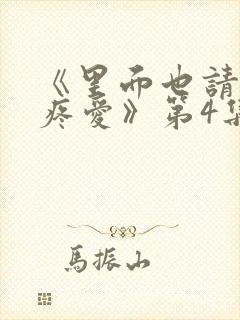 《里而也請
疼愛》第4集
馬振山